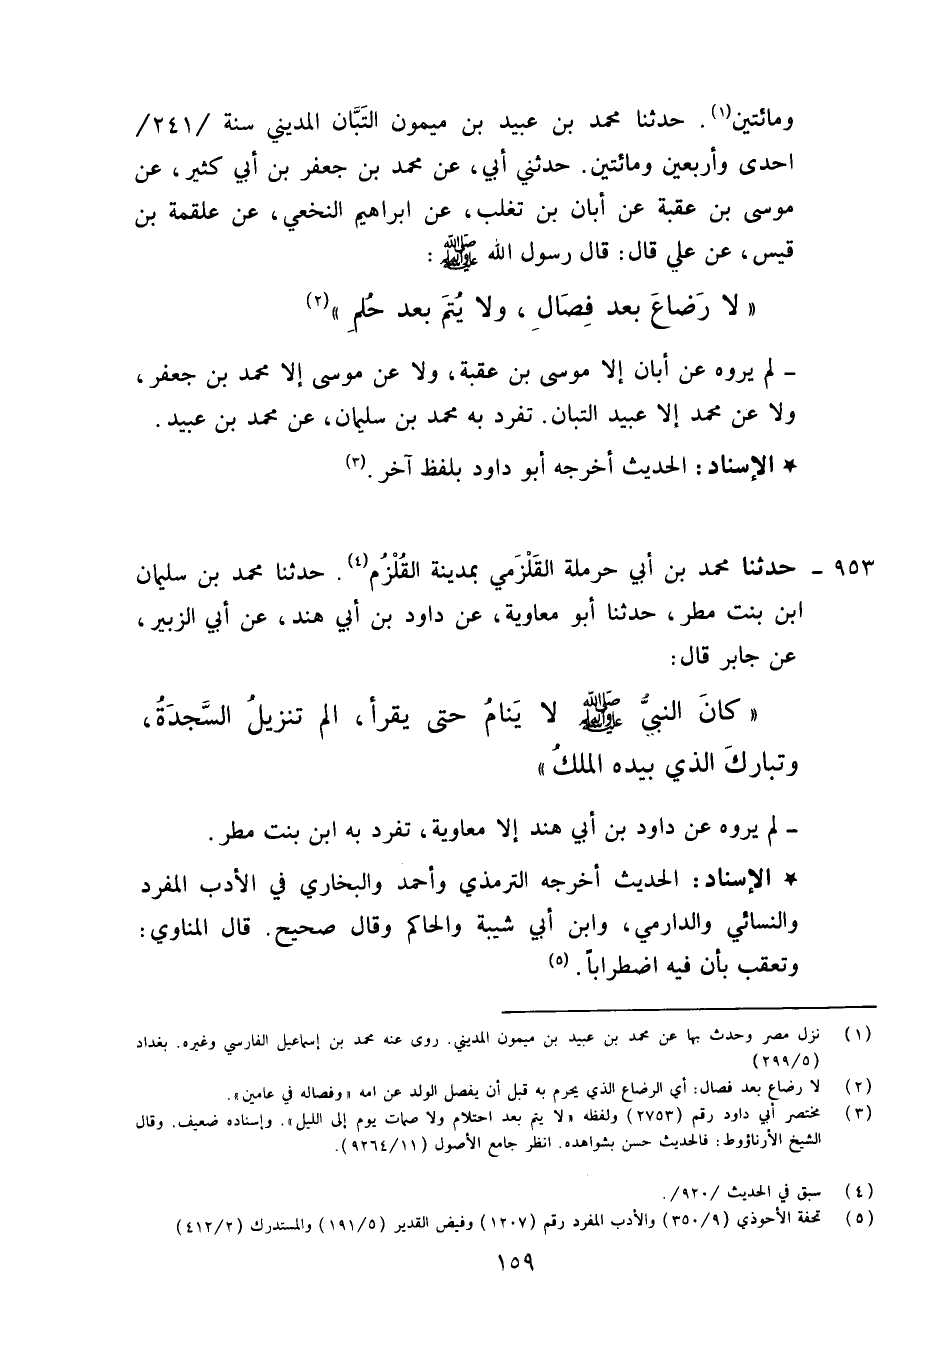 ومائتين(١). حدثنا محمد بن عبيد بن ميمون التَبَّان المديني سنة /٢٤١/
احدى وأربعين ومائتين. حدثني أبي، عن محمد بن جعفر بن أبي كثير، عن
موسى بن عقبة عن أبان بن تغلب، عن ابراهيم النخعي، عن علقمة بن
قيس، عن علي قال: قال رسول الله ﷺ:
« لا رَضاعَ بعد فِصَالٍ، ولا يُتمَ بعد حُلمٍ »(٢)
ـ لم يروه عن أبان إلا موسى بن عقبة، ولا عن موسى إلا محمد بن جعفر،
ولا عن محمد إلا عبيد التبان. تفرد به محمد بن سليمان، عن محمد بن عبيد.
★ الإسناد: الحديث أخرجه أبو داود بلفظ آخر.(٣)
٩٥٣ ـ حدثنا محمد بن أبي حرملة القَلْزَمي بمدينة القُلْزُم(٤). حدثنا محمد بن سليمان
ابن بنت مطر، حدثنا أبو معاوية، عن داود بن أبي هند، عن أبي الزبير،
عن جابر قال:
« كانَ النبيُّ ﷺ لا يَنامُ حتى يقرأ، الم تنزيلُ السَّجدَةُ،
وتباركَ الذي بيده الملكُ »
ـ لم يروه عن داود بن أبي هند إلا معاوية، تفرد به ابن بنت مطر.
★ الإسناد: الحديث أخرجه الترمذي وأحمد والبخاري في الأدب المفرد
والنسائي والدارمي، وابن أبي شيبة والحاكم وقال صحيح. قال المناوي:
وتعقب بأن فيه اضطراباً.(٥)
(١) نزل مصر وحدث بها عن محمد بن عبيد بن ميمون المديني. روى عنه محمد بن إسماعيل الفارسي وغيره. بغداد
(٢٩٩/٥)
(٢) لا رضاع بعد فصال: أي الرضاع الذي يحرم به قبل أن يفصل الولد عن امه «وفصاله في عامين».
(٣) مختصر أبي داود رقم (٢٧٥٣) ولفظه «لا يتم بعد احتلام ولا صمات يوم إلى الليل». وإسناده ضعيف. وقال
الشيخ الأرناؤوط: فالحديث حسن بشواهده. انظر جامع الأصول (٩٢٦٤/١١).
(٤) سبق في الحديث /٩٢٠/.
(٥) تحفة الأحوذي (٣٥٠/٩) والأدب المفرد رقم (١٢٠٧) وفيض القدير (١٩١/٥) والمستدرك (٤١٢/٢)
١٥٩